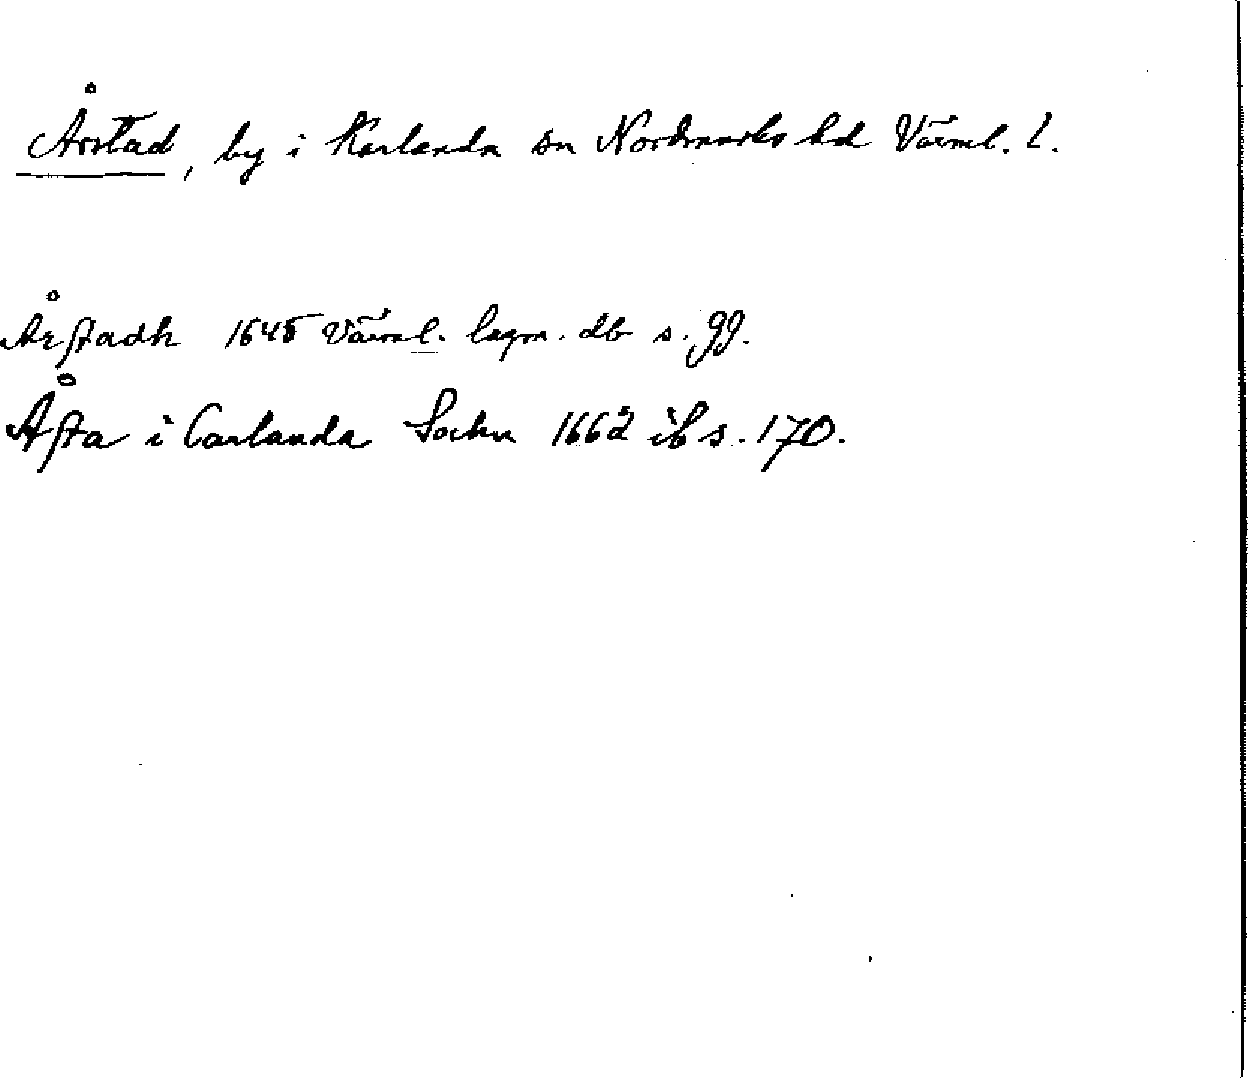 Årstad, by i Karlanda sn Nordmarks hd Värml. l.
Årstadh 1645 Värml. lagm. db s. 99.
Åsta i Carlanda Sochn 1662 ib s. 170.